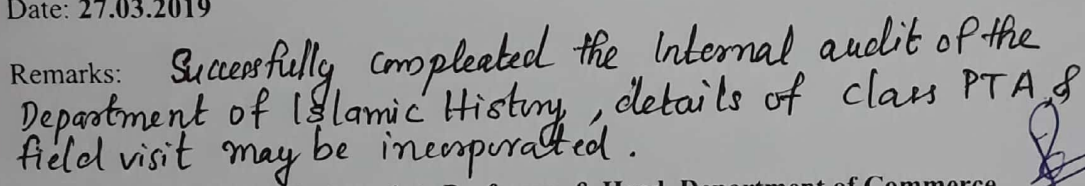 Date: 27.03.2019
Remarks: Successfully compleated the Internal audit of the
Department of Islamic History, details of class PTA &
field visit may be incorporated.
Department of Commerce